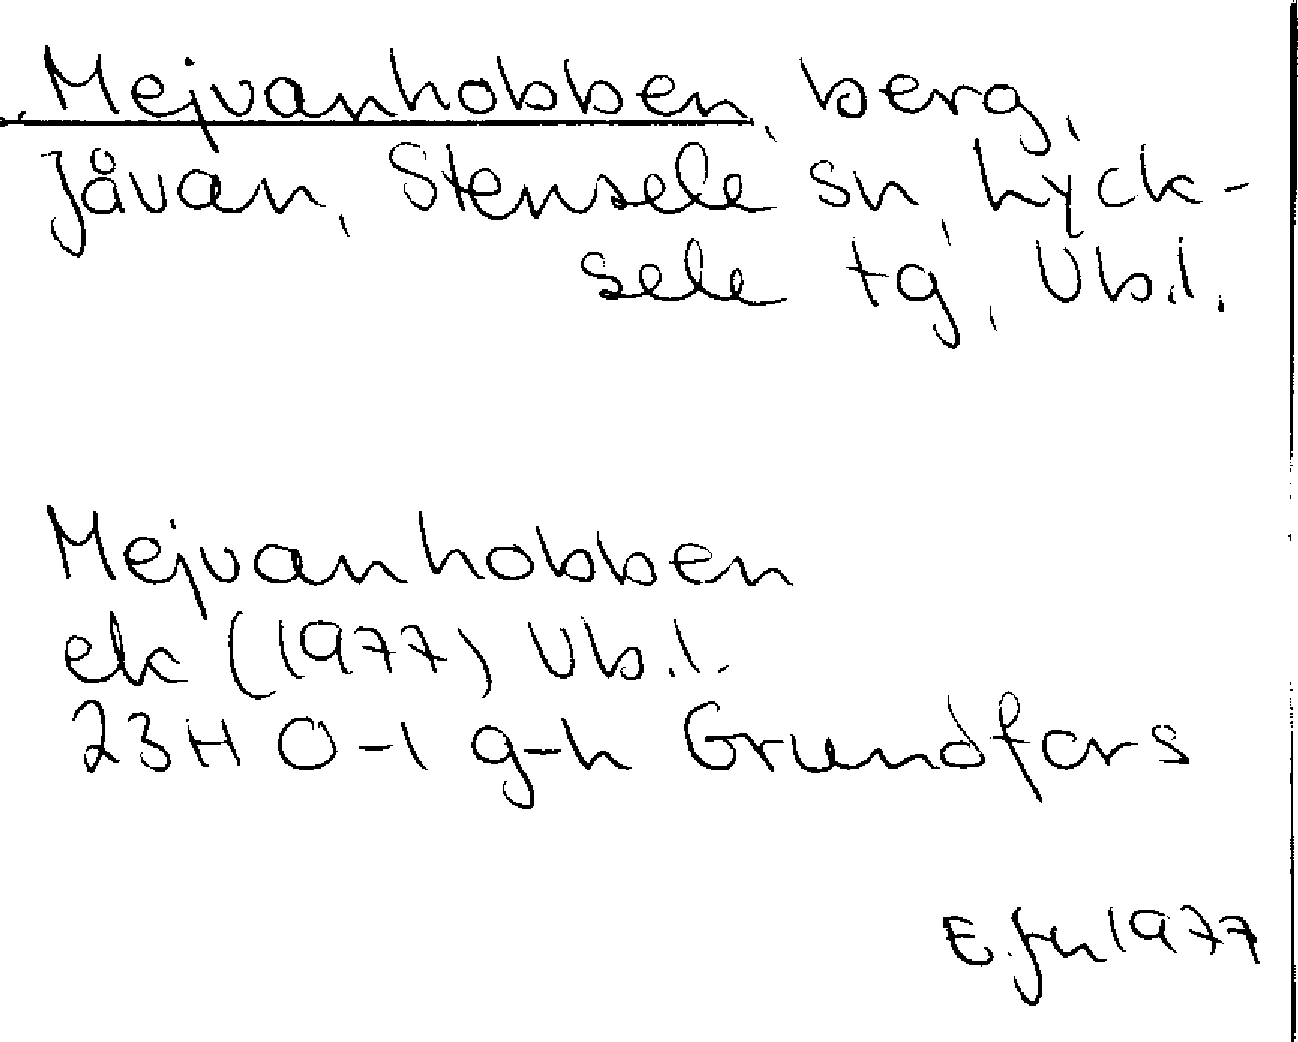 Mejvanhobben, berg,
Jåvan, Stensele sn, Lyck-
sele tg, Vb.l.
Mejvanhobben
ek (1977) Vb.l.
23H 0-1 g-h Grundfors
E. 1977